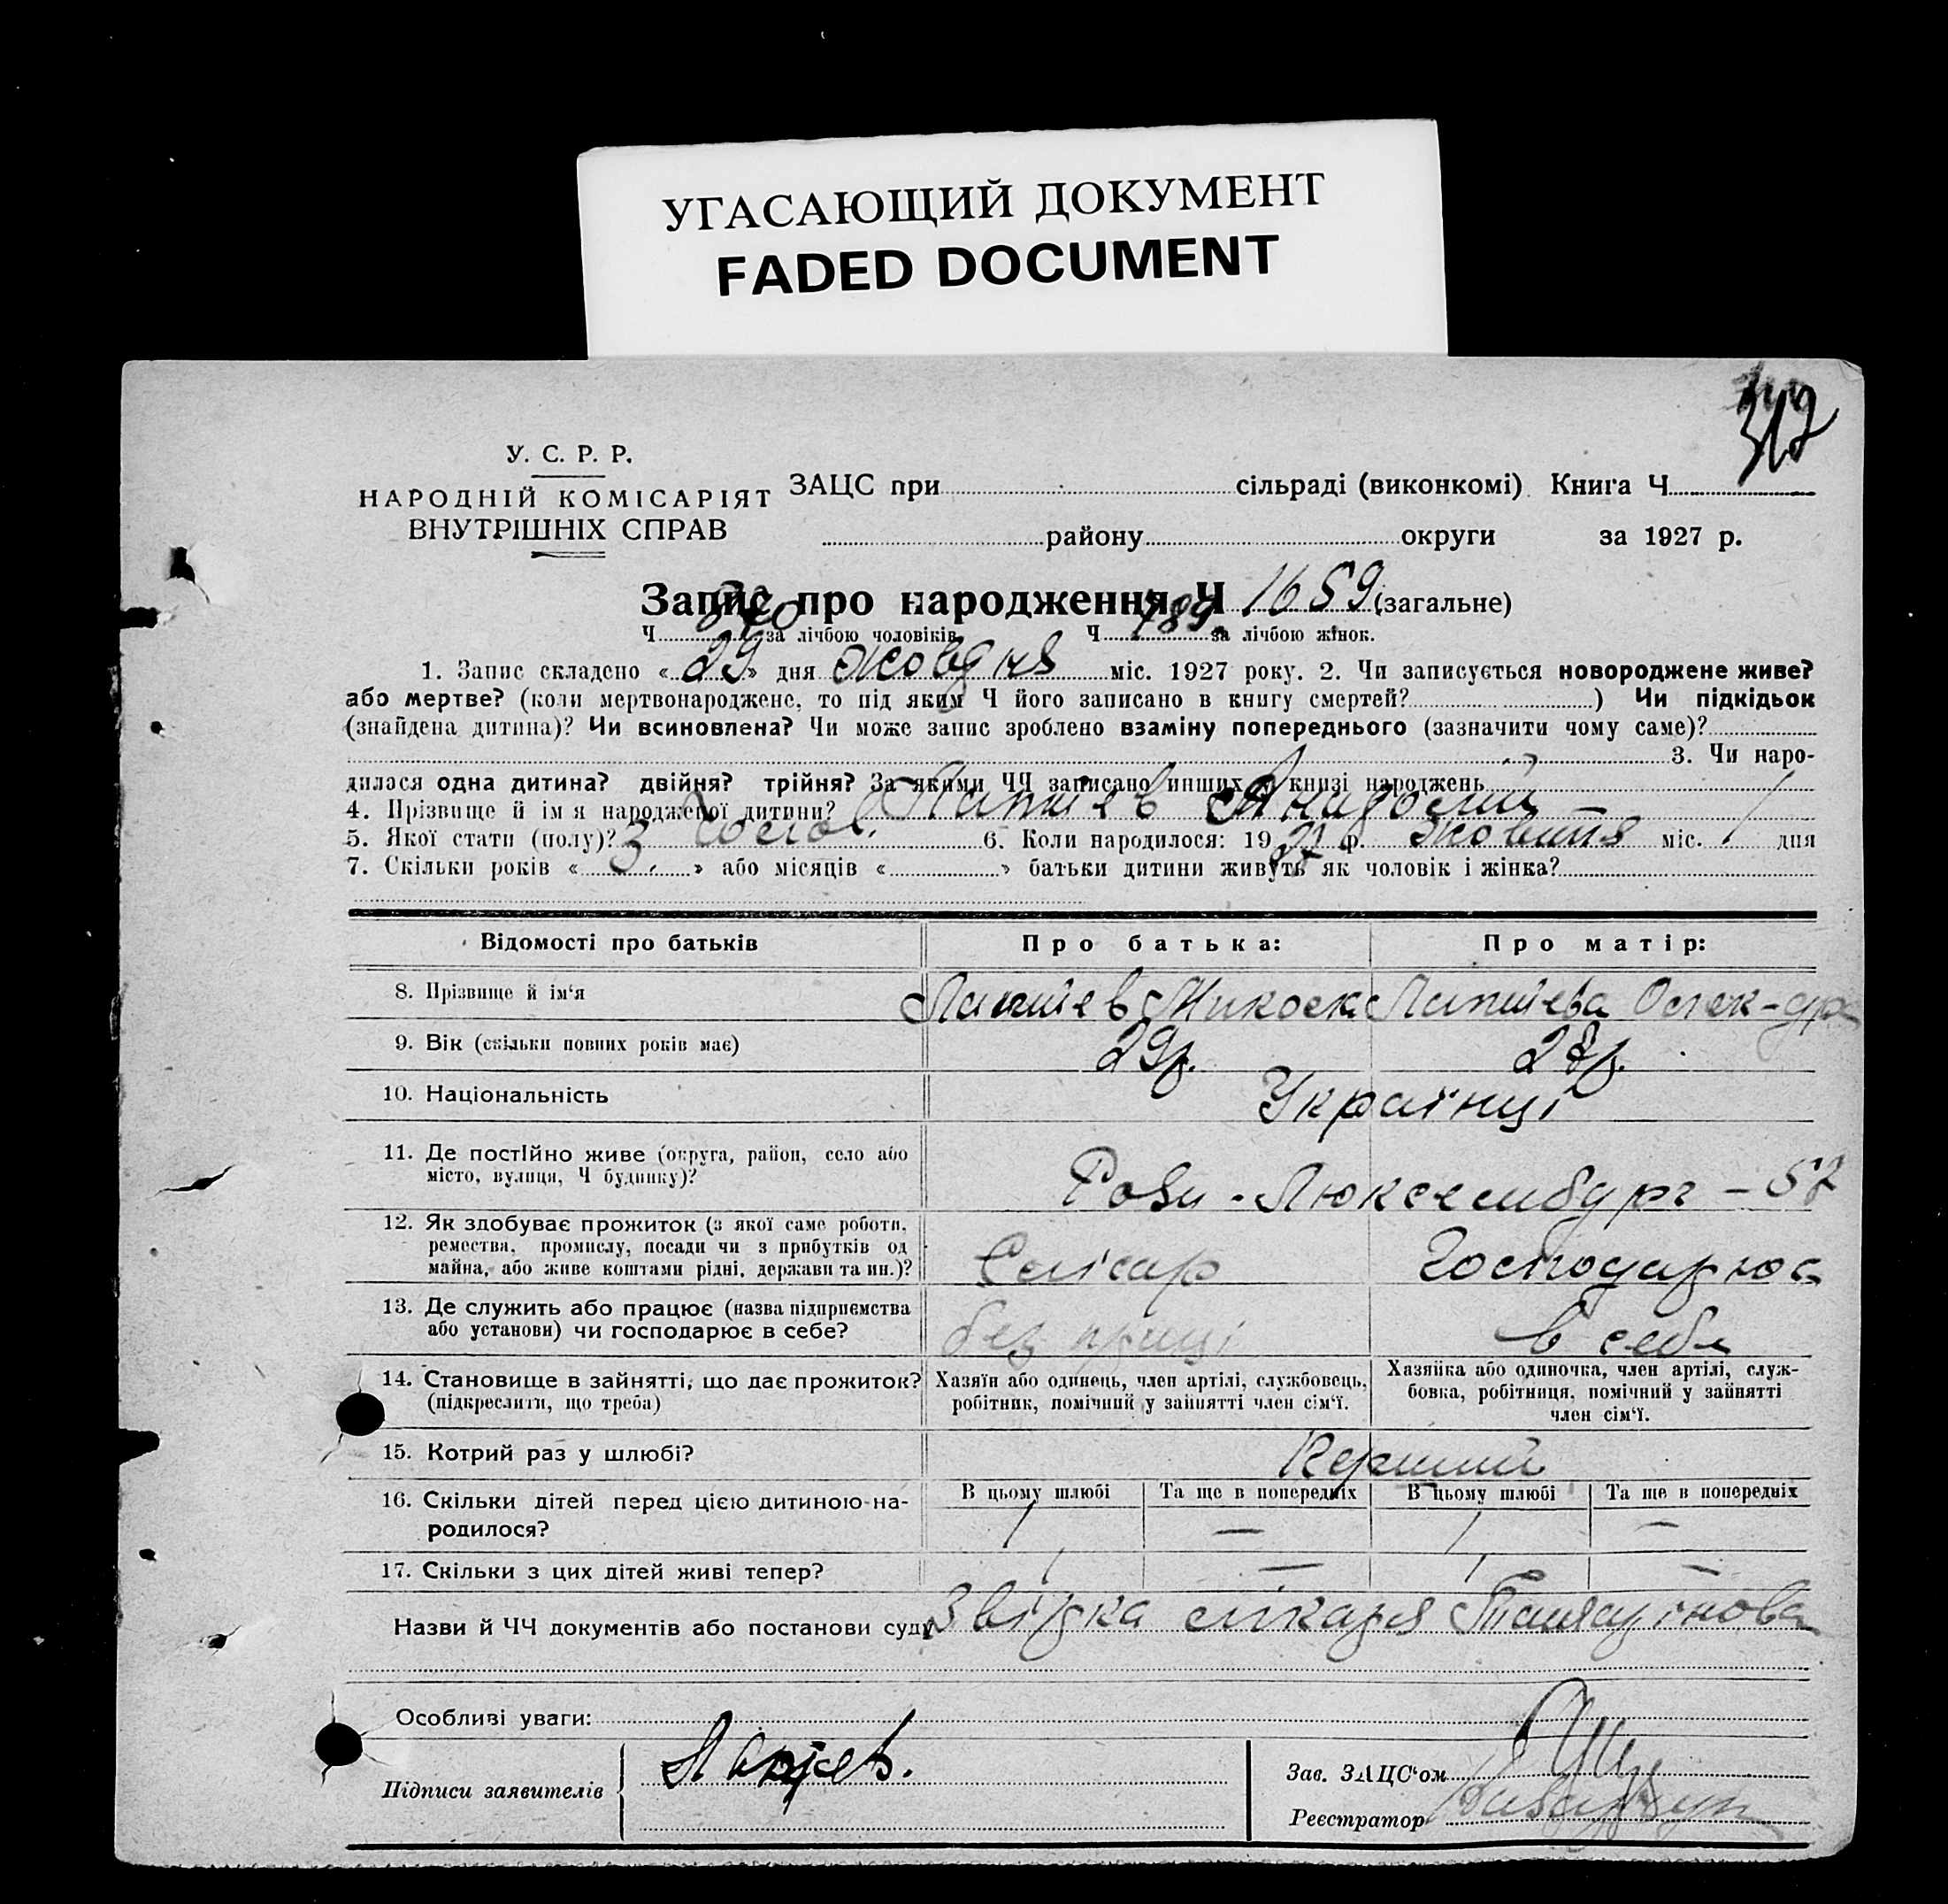 УГАСАЮЩИЙ ДОКУМЕНТ
FADED DOCUMENT
У. С. Р. Р.
НАРОДНІЙ КОМІСАРІЯТ
ВНУТРІШНІХ СПРАВ
ЗАЦС при сільраді (виконкомі) Книга Ч
району округи за 1927 р.
Запис про народження Ч 1659 (загальне)
Ч 870 за лічбою чоловіків Ч 789 за лічбою жінок.
1. Запис складено « 29 » дня жовтня міс. 1927 року. 2. Чи записується новороджене живе?
або мертве? (коли мертвонароджене, то під яким Ч його записано в книгу смертей? ) Чи підкідьок
(знайдена дитина)? Чи всиновлена? Чи може запис зроблено взаміну попереднього (зазначити чому саме)?
3. Чи наро-
дилася одна дитина? двійня? трійня? За якими ЧЧ записано инших у книзі народжень
4. Прізвище й ім я народженої дитини? Лапшев
5. Якої стати (полу)? чолов. 6. Коли народилося: 1927 р. жовтня міс. 1 дня
7. Скільки років « 3 » або місяців « » батьки дитини живуть як чоловік і жінка?
Відомості про батьків
Про батька:
Про матір:
8. Прізвище й ім‘я Лапшев Микола Лапшева Олек-дра
9. Вік (скільки повних років має) 29 р. 27 р.
10. Національність Українці
11. Де постІйно живе (округа, район, село або
місто, вулиця, Ч будинку)?
Рози-Люксембург - 57
12. Як здобуває прожиток (з якої саме роботи,
ремества, промислу, посади чи з прибутків од
майна, або живе коштами рідні, держави та ин.)?
Слісар Господарює
13. Де служить або працює (назва підприємства
або установи) чи господарює в себе?
без праці в себе
14. Становище в зайнятті, що дає прожиток?
(підкреслити, що треба)
Хазяїн або одинець, член артілі, службовець,
робітник, помічний у зайнятті член сім‘ї.
Хазяйка або одиночка, член артілі, служ-
бовка, робітниця, помічний у зайнятті
член сім‘ї.
15. Котрий раз у шлюбі? Перший
16. Скільки дітей перед цією дитиною на-
родилося?
В цьому шлюбі Та ще в попередніх В цьому шлюбі Та ще в попередніх
1 — 1 —
17. Скільки з цих дітей живі тепер? 1 — 1 —
Назви й ЧЧ документів або постанови суду Звідка лікаря
Особливі уваги:
Підписи заявителів
Зав. ЗАЦС‘ом
Реєстратор